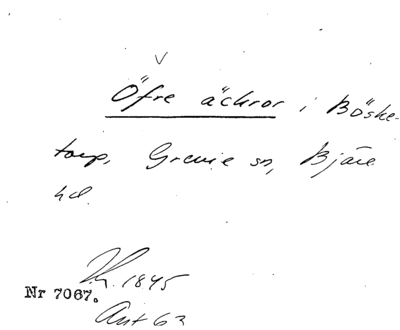 Öfre äckror i Böske-
torp, Grevie sn, Bjäre
hd.
1845
Nr 7067.
Ant 63